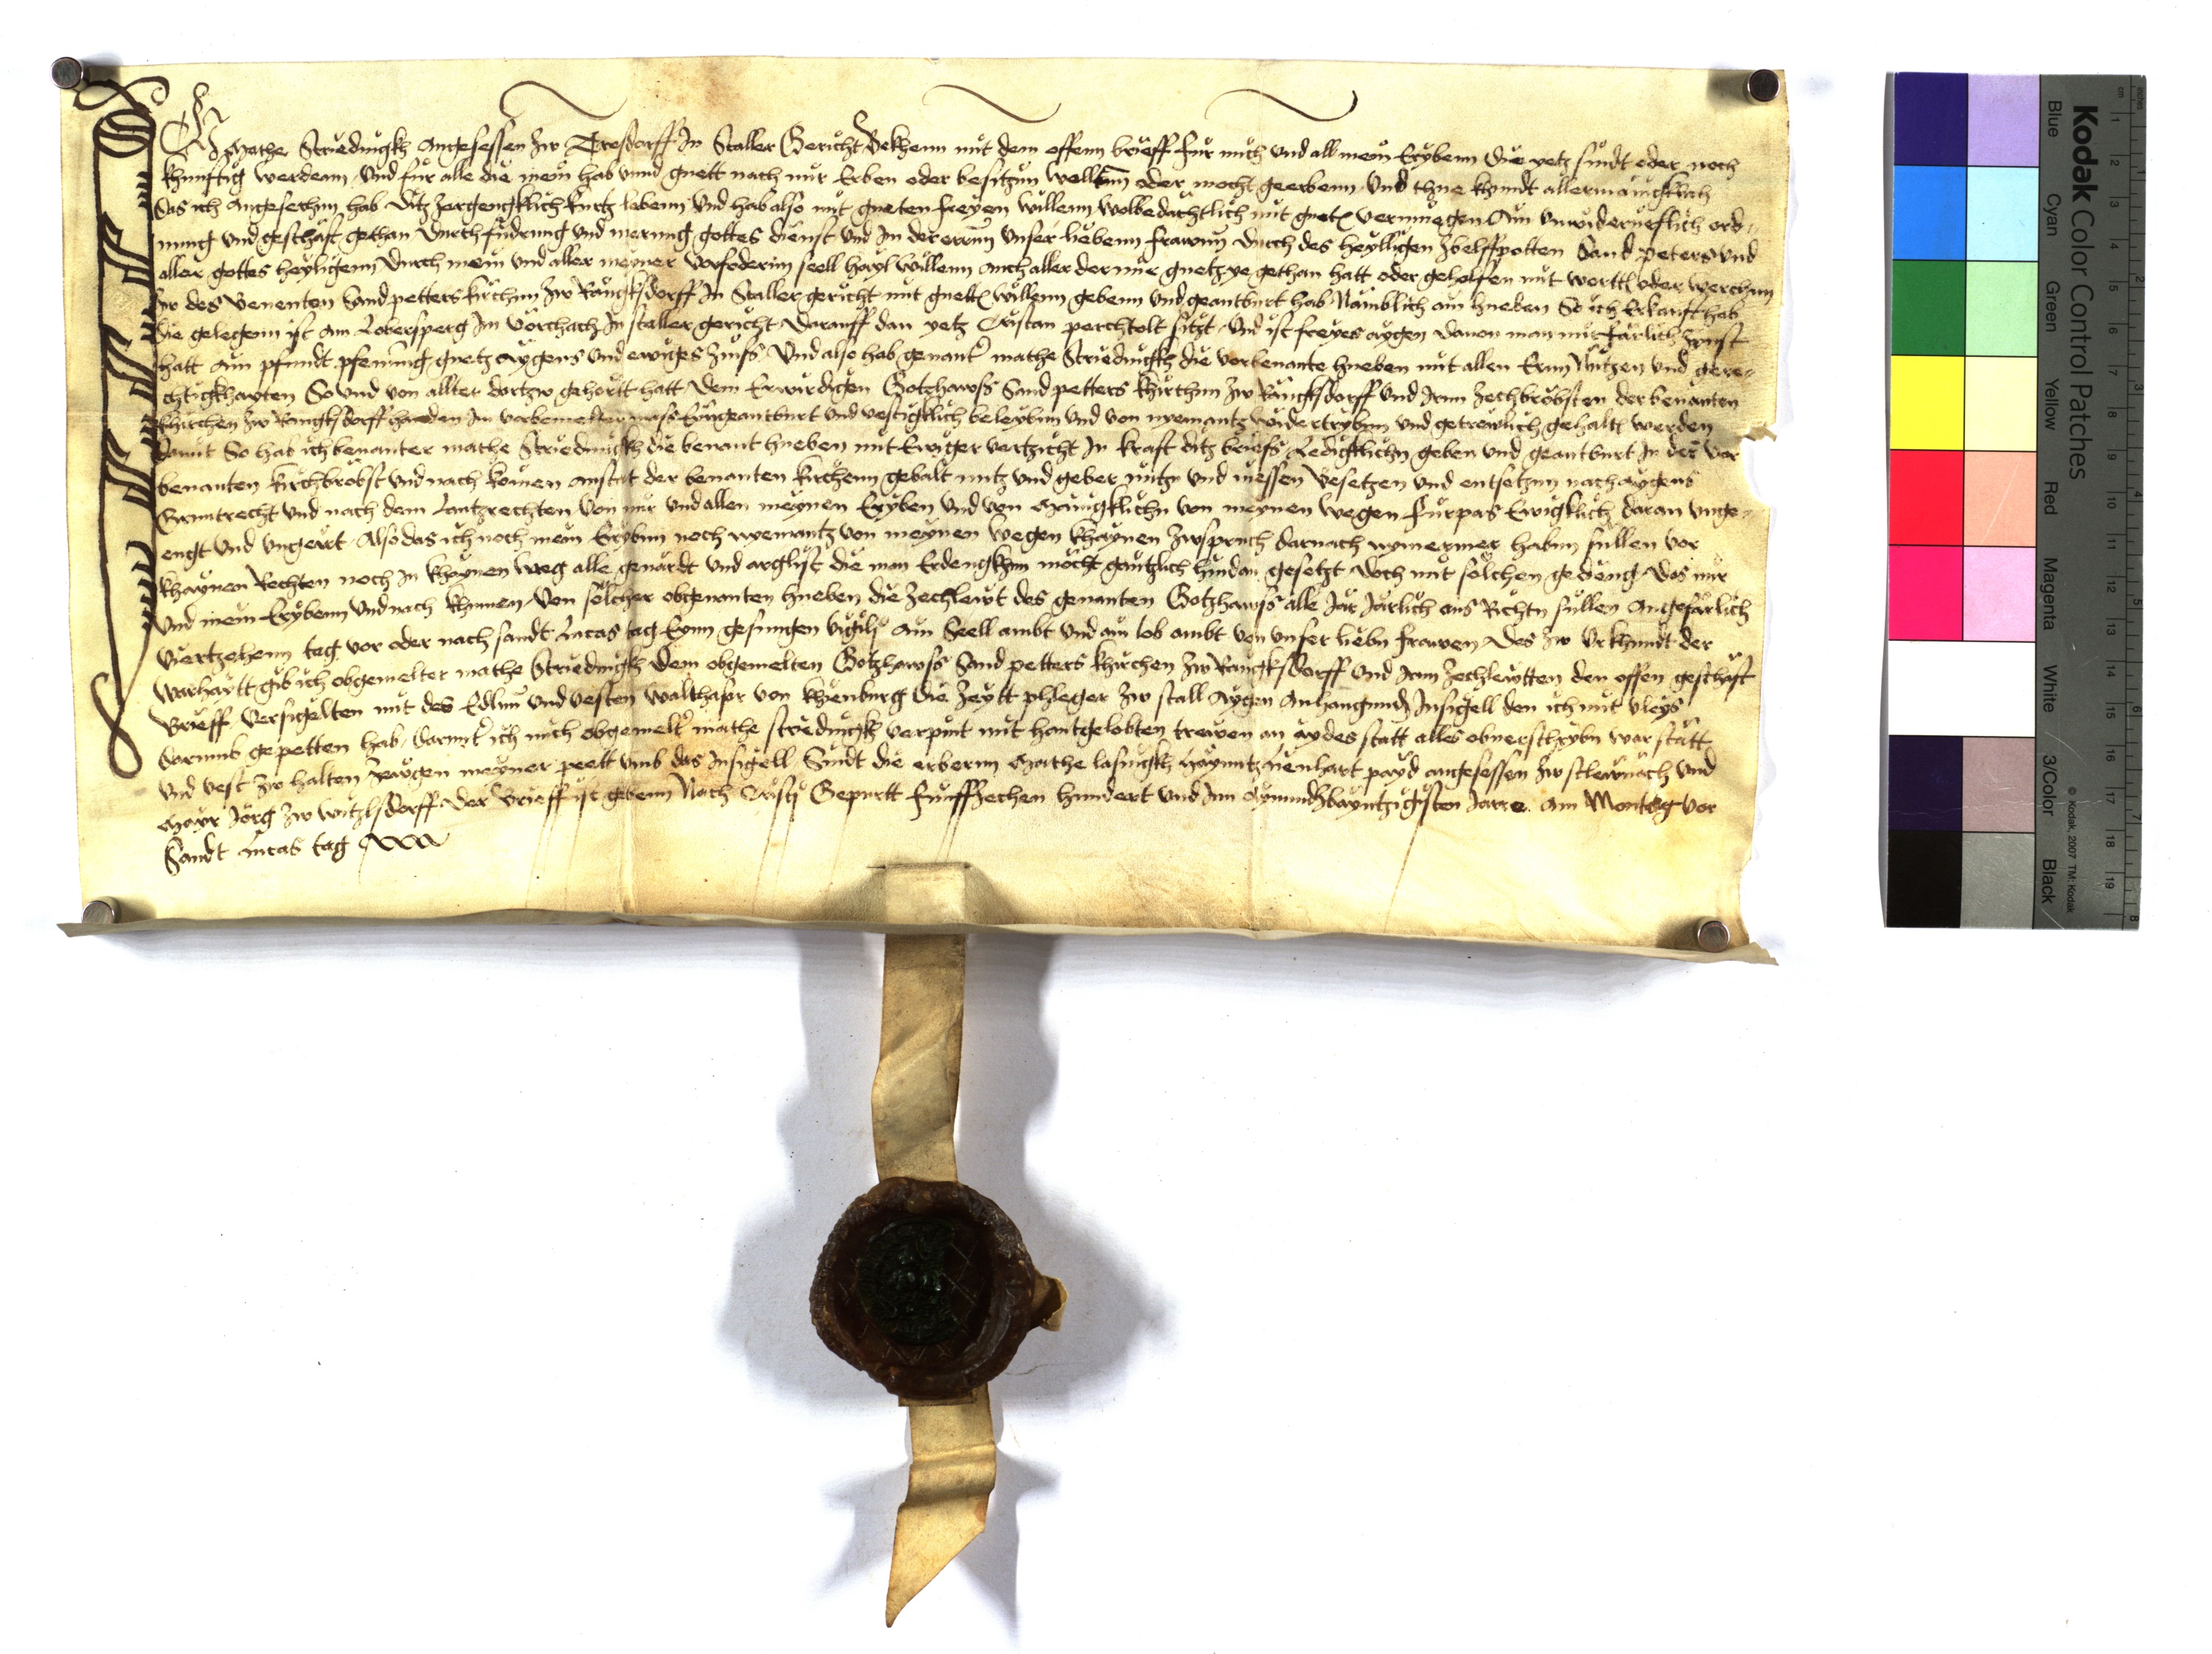 Ich Mathe Striednigkh Angesessen zw Tresdorff In Staller Gericht Bekhenn mit dem offenn brieff fur mich und all mein Erÿbenn die yetz sindt oder noch
khunftig werdenn Und fur alle die mein hab unnd guett nach mir Erben oder besitznn wellenn oder mocht geerbenn Und thue khundt allermaingklich
das ich angesechnn hab ditz zergengklich kurtz lebenn Und hab also mit gueten freyen willenn wolbedachtlich mit guet vermuegen Ain unwiderueflich ord-
nung und geschäft gethan durch fudrung und merung gottes dienst und In der errnn unser liebenn frawnn durch des heylligen zbelffpotten Sand peters und
aller gottes heyligenn durch mein und aller meyner vorfoderinn seell hayl willenn auch aller der mir guetz ye gethan hatt oder geholfen mit wortt oder werchnn
zw des benenten Sand petters kirchnn zw Rangksdorff In Staller gericht mit guett willenn gebenn und geantburt hab Namblich ain hueben So ich Erkauft hab
die gelegenn ist am Lobersperg Im Vörchach In staller gericht darauff dan yetz Cristan perchtolt sitzt Und ist freyes aygen davon man mir Järlich zynst
hatt ain pfundt pfening guetz aygens und ewiges zinss Und also hab genant mathe Striednigkh die vorbenante hueben mit allen Ernn Nutzen und gere-
chtigkhayten So und von allter dartzw gehortt hatt dem Erwirdigen Gotzhawss Sand petters khirchnn zw Rangksdorff und Irnn zechbröbsten der benanten
khirchen zw Rangksdorff handen Im vorbemelter mass Eingeantburt und vestigklich beleybnn und von nyemantz widertrybnn und getrewlich gehalt werden
damit So hab ich benanter mathe Striednigkh die benant hueben mit Ewiger vertzicht In kraft ditz briefs Ledigklichn geben und geantburt In der vor
benanten kirchbröbst und nach komen anstat der benanten kirchenn gebalt nutz und geber nutzn und niessen besetzen und entsetznn nach aygens
Grunt recht und nach dem Lantzrechten Von mir und allen meynen Eryben und von Maingklichn von meynen wegen furpas Ewigklich daran unge-
engt und ungeirt Also das ich noch mein Erybnn noch nyemantz von meynen wegen khaynen zwspruch darnach nymermer habnn sullen vor
khaynen Rechten noch In khaynen weg alle gevärdt und arglist die man Erdengkhnn möcht gäntzlich hindan gesetzt doch mit solchen gedieng das mir
und mein Erybenn und nach khumen von solcher obgenanten hueben die zechlewt des genanten Gotzhawss alle Jar Järlich aus Richtn sullen Angefärlich
viertzehenn tag vor oder nach sandt Lucas tag Eynn gesungen vigily ain Seell ambt und ain lob ambt von unser liebn frawen des zw Urkhundt der
warhaytt gib ich obgemelter mathe Striednigkh dem obgemelten Gotzhawss Sand petters khirchen zw Rangksdorff und Irnn zechlewtten den offen geschäft
brieff versigelten mit des Edlnn und vesten walthasr von khienburg die zeytt phleger zw stall aygen Anhangundn Insigell den ich mit vleys
darumb gepetten hab darunt ich mich obgemelt mathe striednigkh verpint mit hantgelobten trewen an aydes statt alles obverschrybn war statt
und vest zw halten zewgen meyner peett umb das Insigell Sindt die erbernn Mathe lasnigkh hayntz lienhart payd angesessen zw stlewnach und
Mayr Jörg zw witzlsdorff der brieff ist gebenn Nach Cristÿ Gepurtt funffzechen hundert und Im Aynundzbayntzigisten Jarre am Montag vor
Sandt Lucas tag
Kodak Color Control Patches
Blue Cyan Green Yellow Red Magenta White 3/Color Black
© Kodak, 2007 TM: Kodak